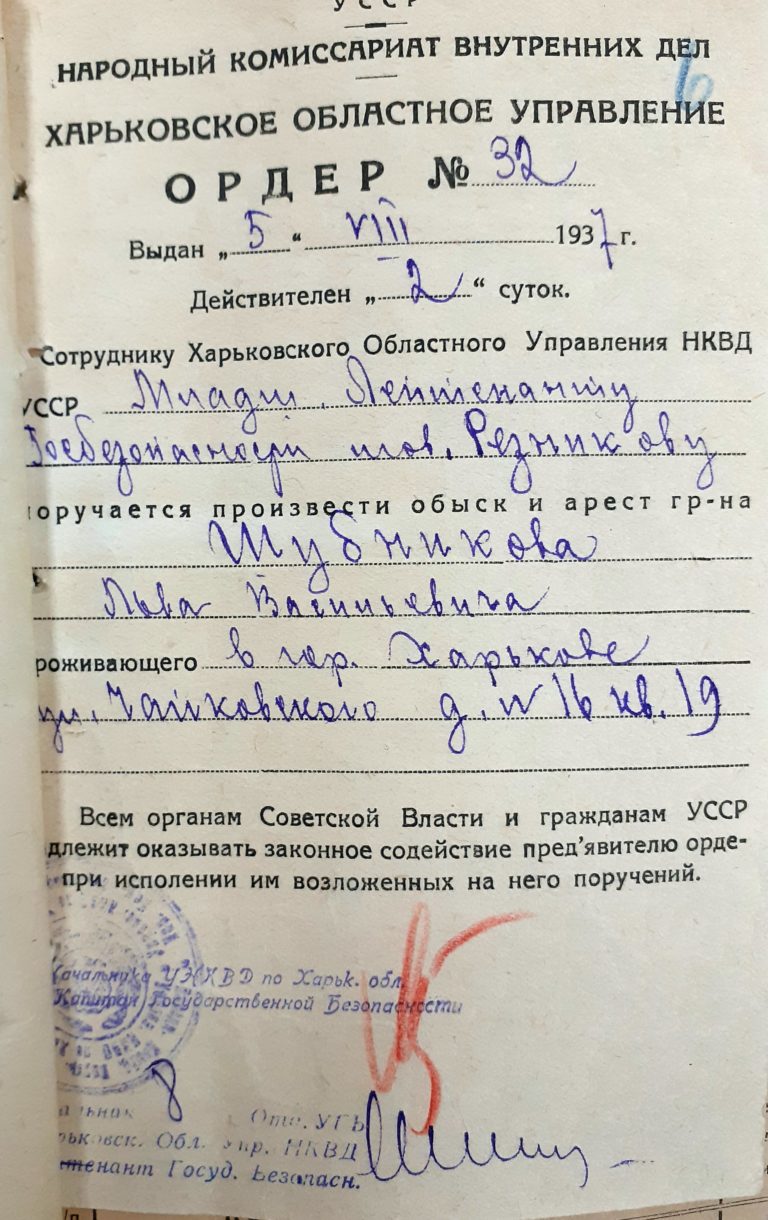 УССР
НАРОДНЫЙ КОМИССАРИАТ ВНУТРЕННИХ ДЕЛ
6
ХАРЬКОВСКОЕ ОБЛАСТНОЕ УПРАВЛЕНИЕ
ОРДЕР № 32
Выдан „5“ VIII 1937 г.
Действителен „2“ суток.
Сотруднику Харьковского Областного Управления НКВД
УССР Младш. Лейтенанту
Госбезопасности тов. Резникову
оручается произвести обыск и арест гр-на
Шубникова
Льва Васильевича
роживающего в гор. Харькове
ул. Чайковского д. № 16 кв. 19
Всем органам Советской Власти и гражданам УССР
длежит оказывать законное содействие пред'явителю орде-
при исполении им возложенных на него поручений.
Начальника УНКВД по Харьк. обл.
Капитан Государственной Безопасности
альник 8 Отд. УГБ
рьковск. Обл. Упр. НКВД
тенант Госуд. Безопасн.